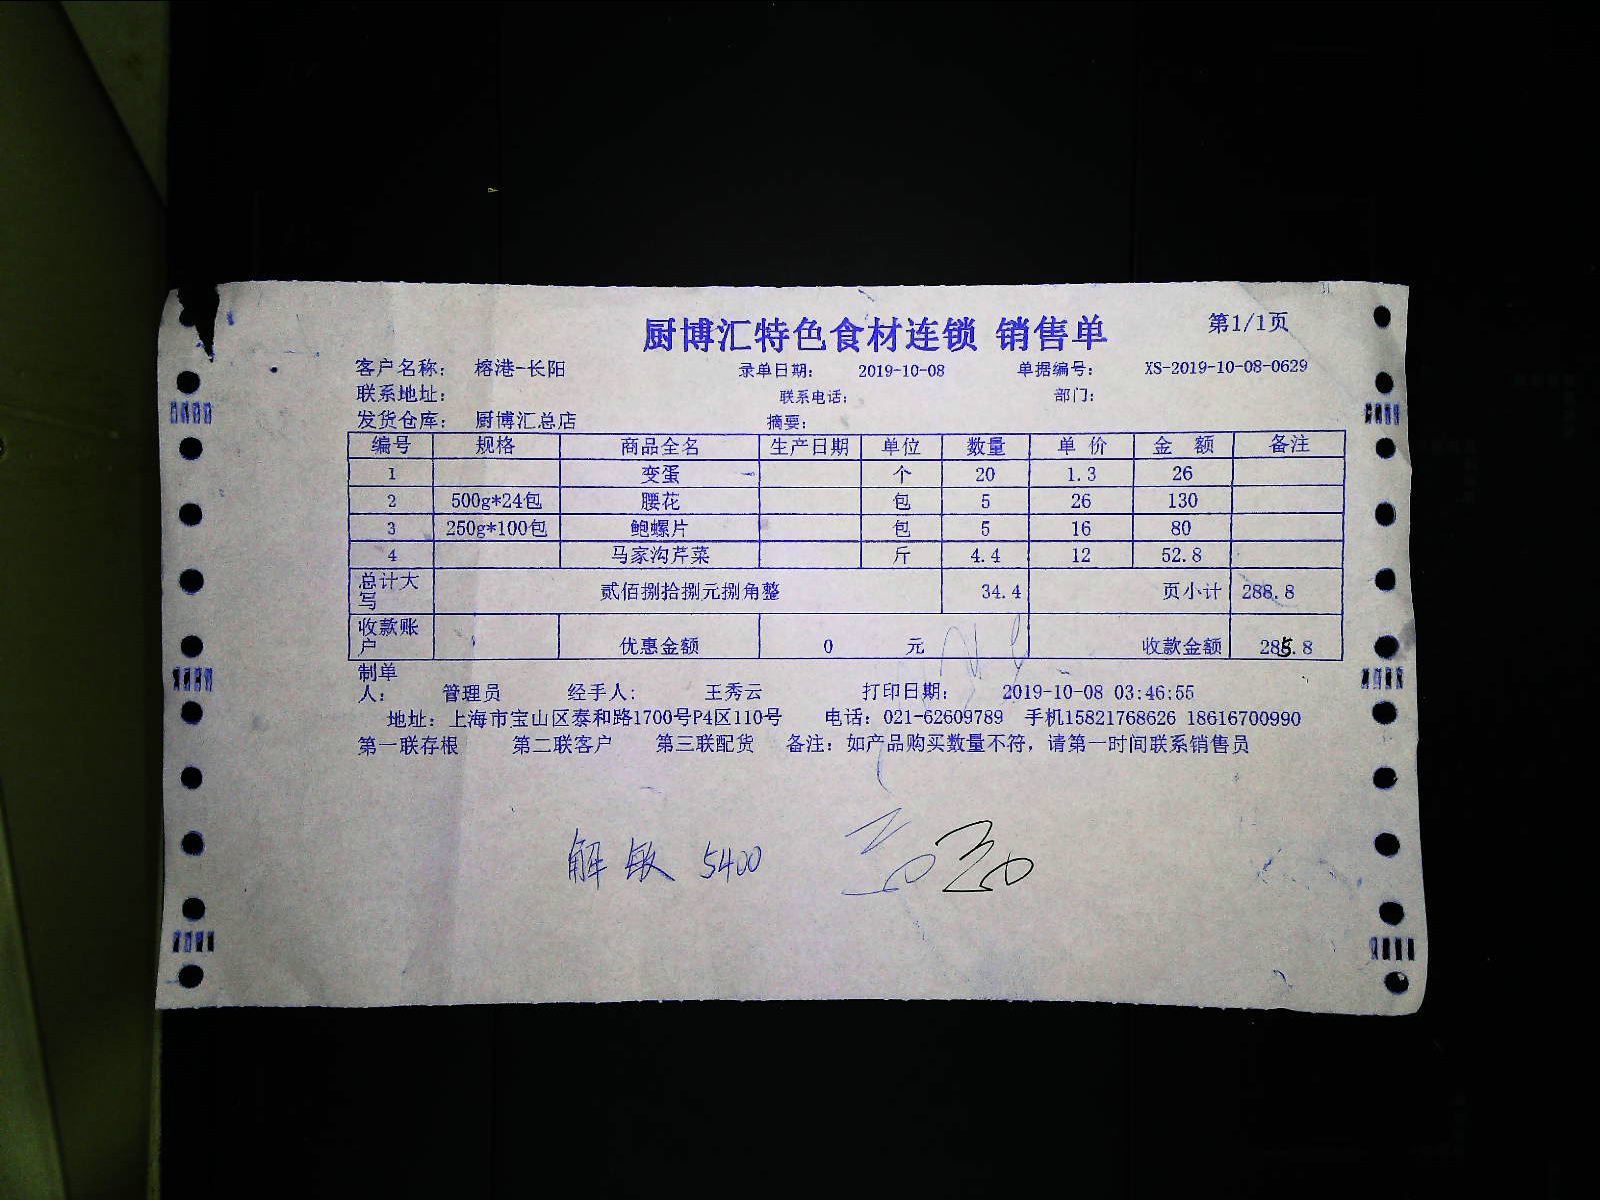 厨博汇特色食材连锁 销售单 第1/1页
客户名称： 榕港-长阳 录单日期： 2019-10-08 单据编号： XS-2019-10-08-0629
联系地址： 联系电话： 部门：
发货仓库： 厨博汇总店 摘要：
编号 规格 商品全名 生产日期 单位 数量 单价 金额 备注
1 变蛋 个 20 1.3 26
2 500g*24包 腰花 包 5 26 130
3 250g*100包 鲍螺片 包 5 16 80
4 马家沟芹菜 斤 4.4 12 52.8
总计大写 贰佰捌拾捌元捌角整 34.4 页小计 288.8
收款账户 优惠金额 0 元 收款金额 285.8
制单人： 管理员 经手人： 王秀云 打印日期： 2019-10-08 03:46:55
地址：上海市宝山区泰和路1700号P4区110号 电话：021-62609789 手机15821768626 18616700990
第一联存根 第二联客户 第三联配货 备注：如产品购买数量不符，请第一时间联系销售员
解敏 5400